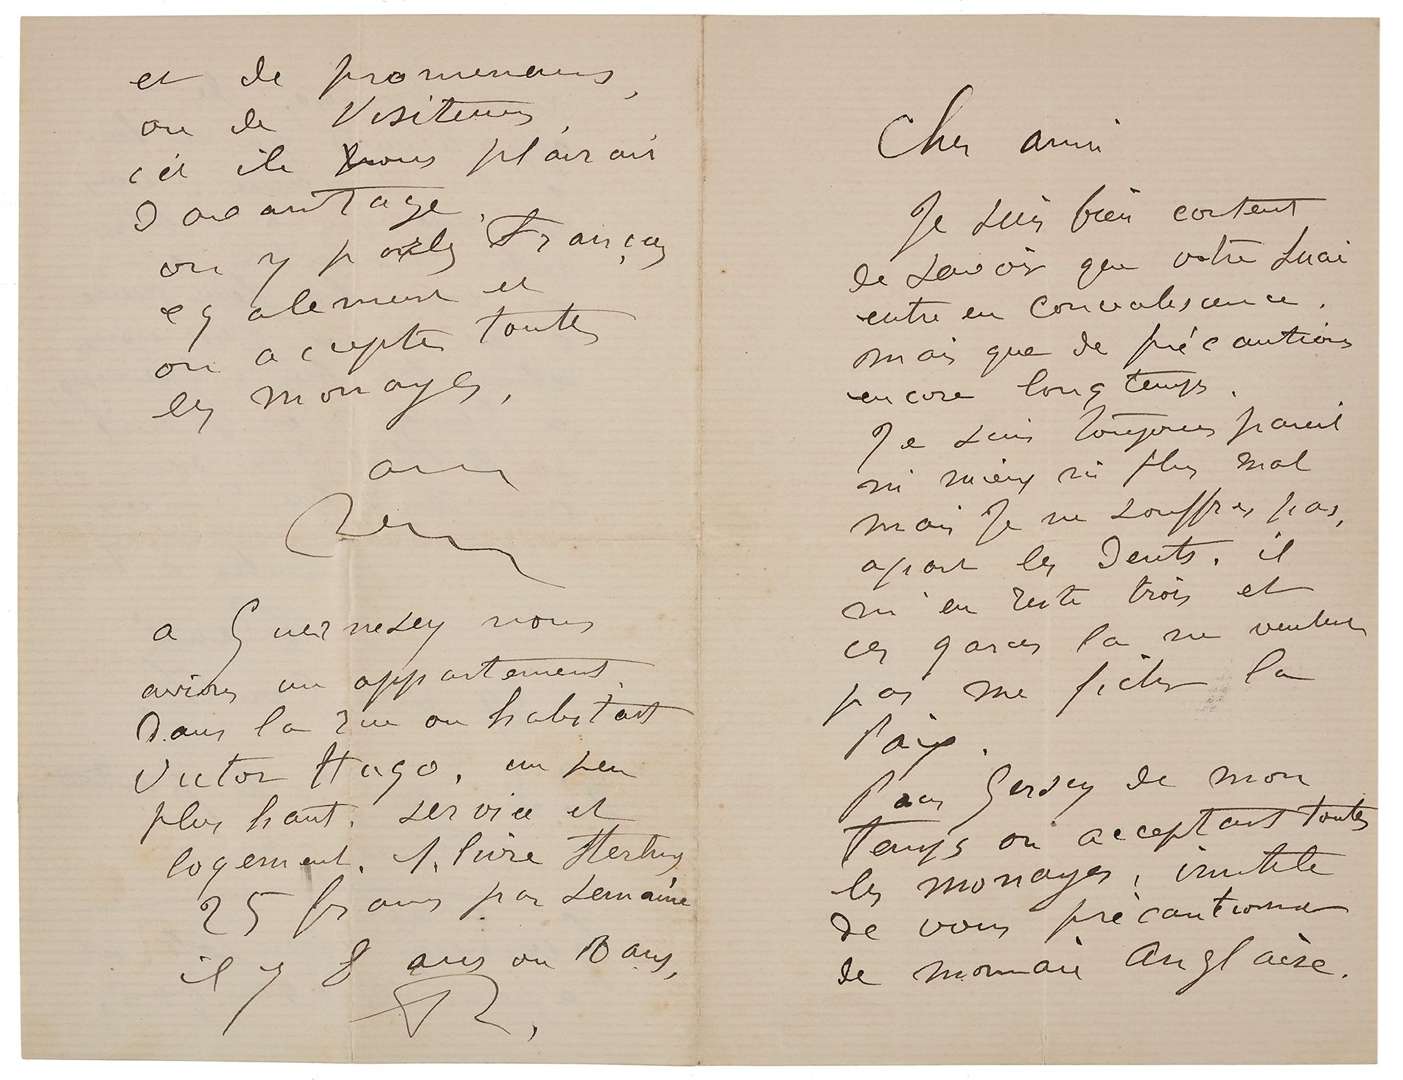 Cher ami
Je suis bien content
de savoir que votre
entre en convalescence.
mais que de précautions
encore longtemps.
Je suis toujours pareil
ni mieux ni plus mal
mais Je ne souffres pas,
apart les Dents. il
m'en reste trois et
ces garces la ne veulent
pas me ficher la
Paix.
Pour Gersey de mon
temps on acceptait toutes
les monayes, inutile
de vous précautionner
de monnaie Anglaise.
et de promeneurs,
ou de Visiteurs,
cet ile vous plairait
Davantage.
on y parles Français
egalement et
on acceptes toutes
les monayes,
ami
a Guernesey nous
avions un appartement
Dans la rue ou habitait
Victor Hugo, un peu
plus haut. service et
logement. 1 livre Sterling
25 francs par semaine
il y 8 ans ou 10 ans,
R,